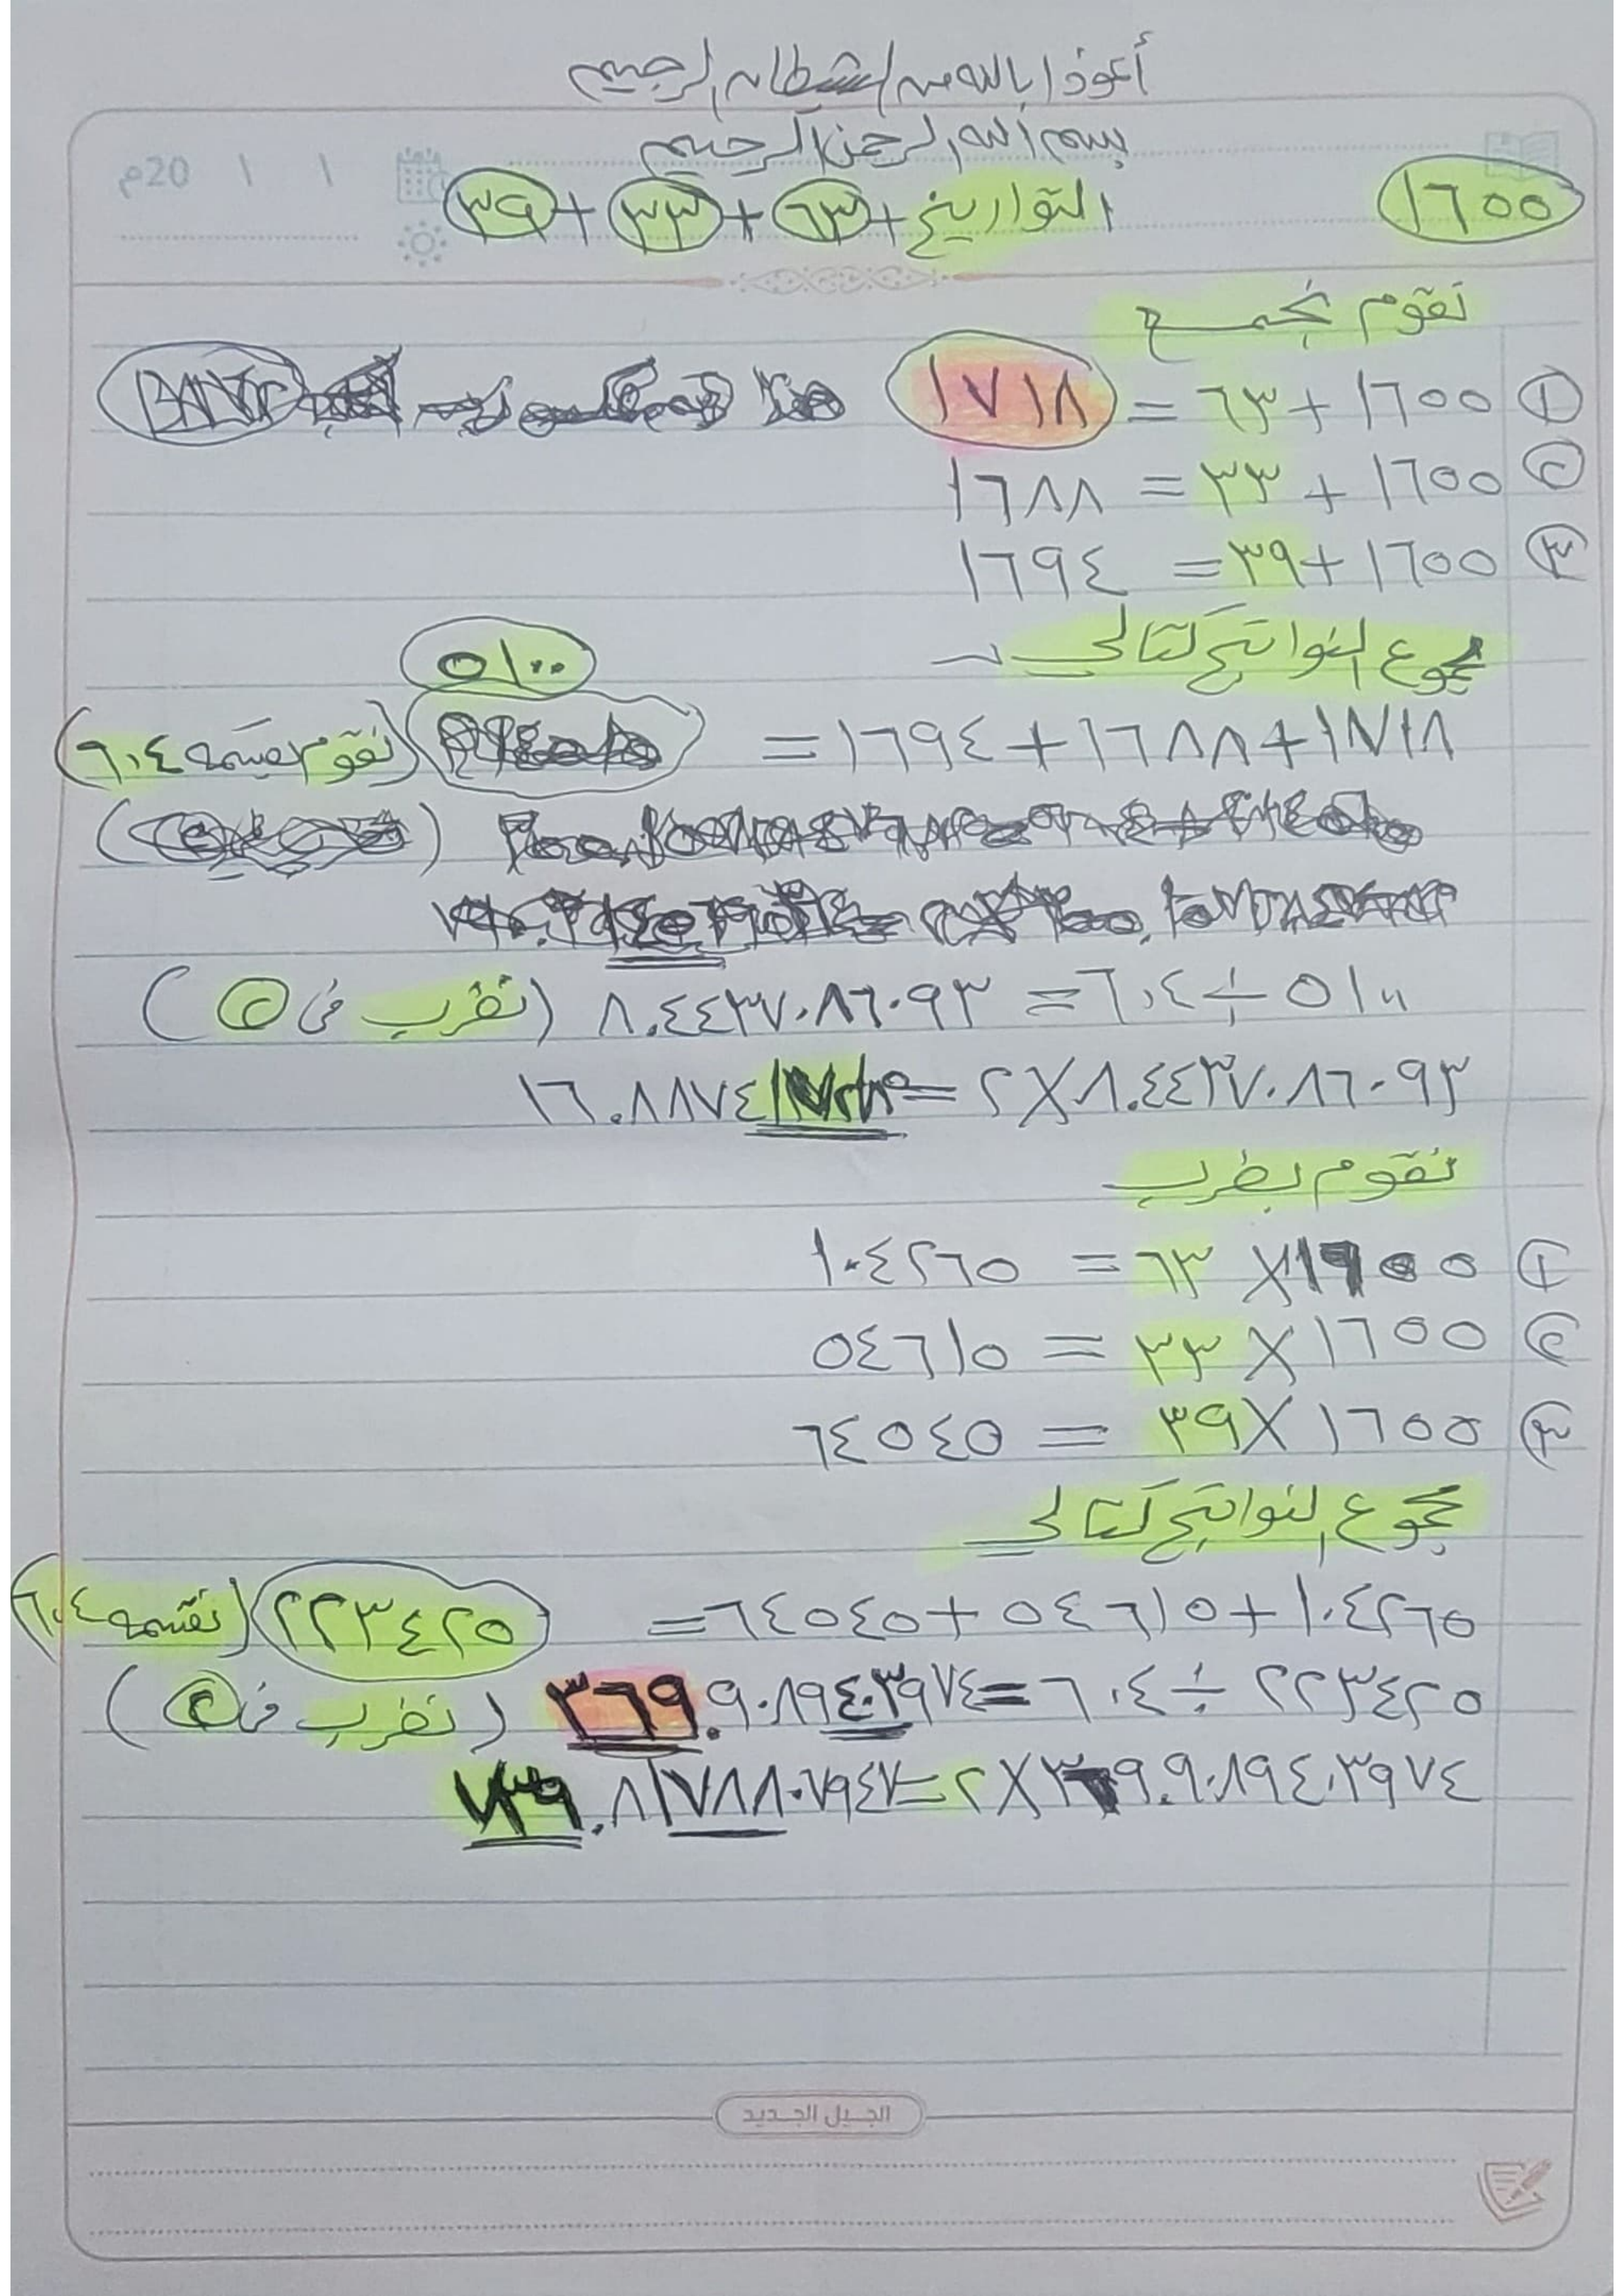 أعوذ بالله من الشيطان الرجيم
بسم الله الرحمن الرحيم
20م / /
١٦٥٥ التواريخ + ٦٣ + ٣٣ + ٣٩
نقوم بجمع
① ١٦٥٥ + ٦٣ = ١٧١٨ هذا
② ١٦٥٥ + ٣٣ = ١٦٨٨
③ ١٦٥٥ + ٣٩ = ١٦٩٤
مجموع النواتج كتالي
٥١٠٠
١٧١٨ + ١٦٨٨ + ١٦٩٤ = (نقوم قسمه ٦٠٤)
٥١٠٠ ÷ ٦٠٤ = ٨.٤٤٣٧٠٨٦٠٩٣ (نضرب في ②)
٨.٤٤٣٧٠٨٦٠٩٣ × ٢ = ١٦.٨٨٧٤١٧٢١٨٥
نقوم بضرب
① ١٦٥٥ × ٦٣ = ١٠٤٢٦٥
② ١٦٥٥ × ٣٣ = ٥٤٦١٥
③ ١٦٥٥ × ٣٩ = ٦٤٥٤٥
مجموع النواتج كتالي
١٠٤٢٦٥ + ٥٤٦١٥ + ٦٤٥٤٥ = ٢٢٣٤٢٥ (نقسمه ٦٠٤
٢٢٣٤٢٥ ÷ ٦٠٤ = ٣٦٩.٩٠٨٩٤٠٣٩٧٤ (نضرب في ②)
٣٦٩.٩٠٨٩٤٠٣٩٧٤ × ٢ = ٧٣٩.٨١٧٨٨٠٧٩٤٧
الجيل الجديد